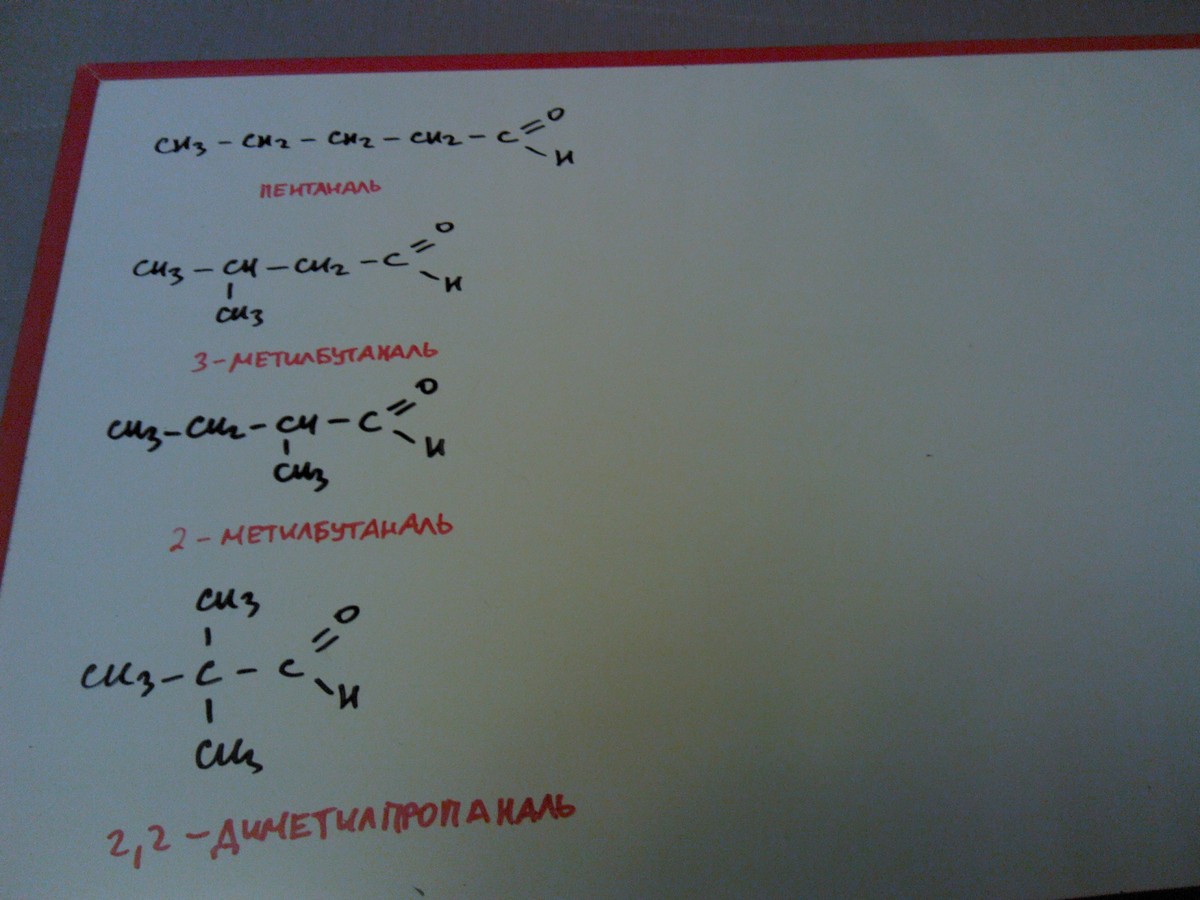 CH3 - CH2 - CH2 - CH2 - C = O
- H
ПЕНТАНАЛЬ
CH3 - CH - CH2 - C = O
- H
CH3
3-МЕТИЛБУТАНАЛЬ
CH3 - CH2 - CH - C = O
- H
CH3
2-МЕТИЛБУТАНАЛЬ
CH3
CH3 - C - C = O
- H
CH3
2,2-ДИМЕТИЛПРОПАНАЛЬ